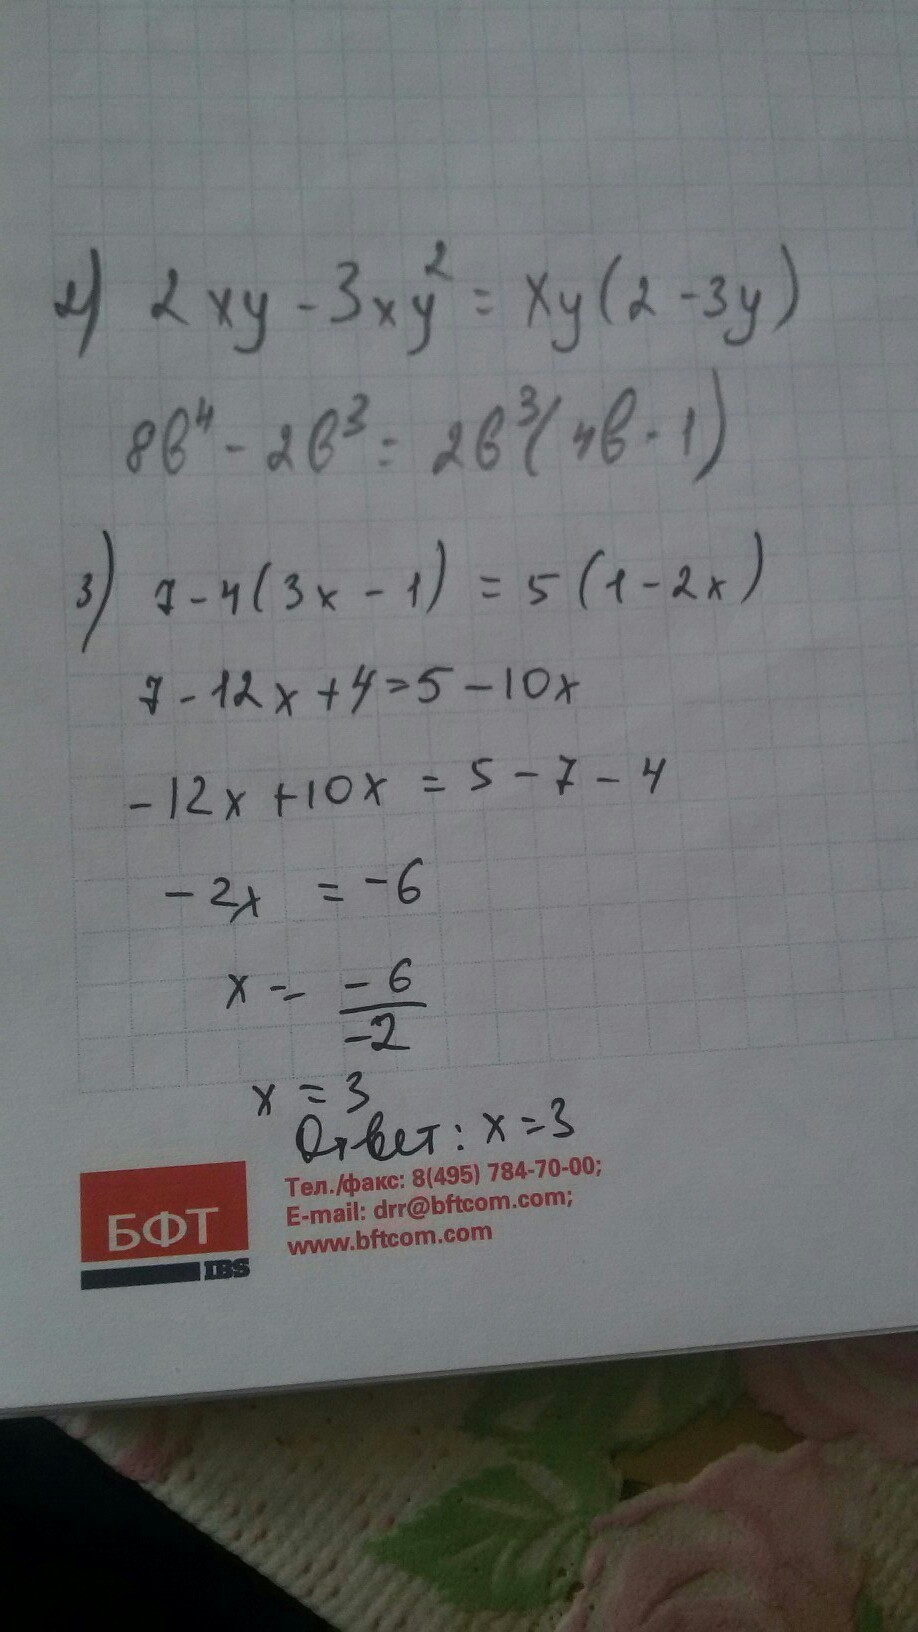 2) 2xy - 3xy² = xy(2 - 3y)
8b⁴ - 2b³ = 2b³(4b - 1)
3) 7 - 4(3x - 1) = 5(1 - 2x)
7 - 12x + 4 = 5 - 10x
-12x + 10x = 5 - 7 - 4
-2x = -6
x = -6/-2
x = 3
Ответ: x = 3
БФТ
IBS
Тел./факс: 8(495) 784-70-00;
E-mail: drr@bftcom.com;
www.bftcom.com